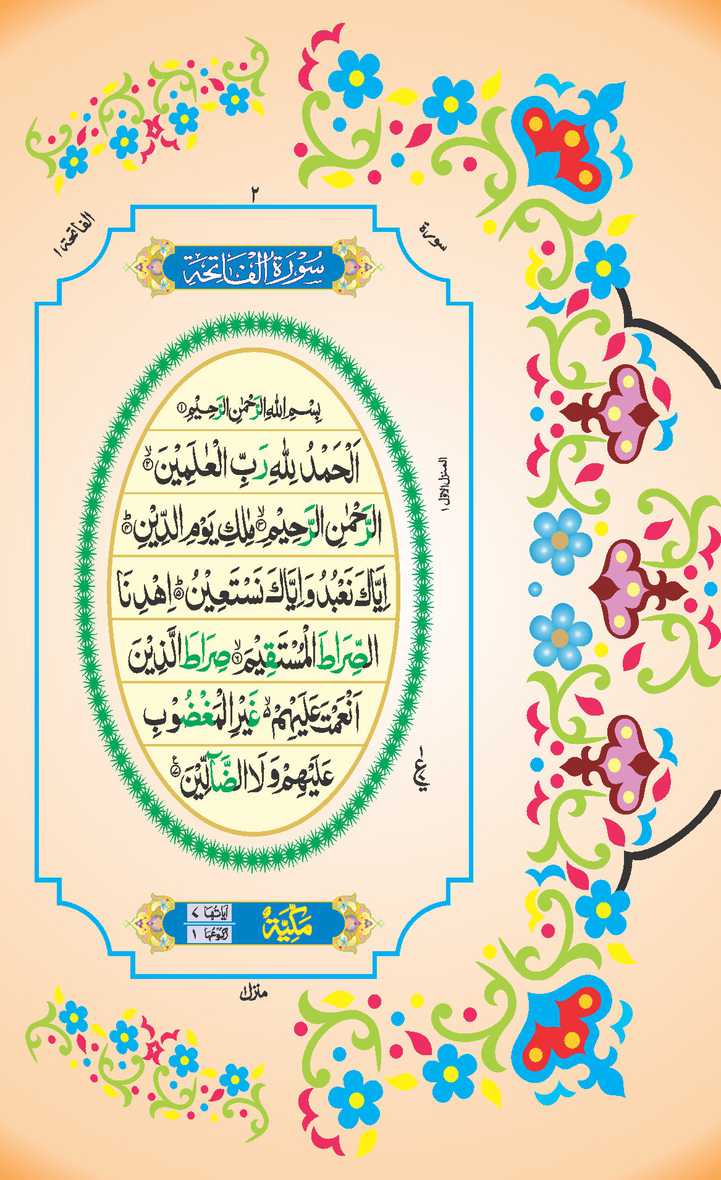 ٢
الفاتحة ١
سورة
سُوْرَةُ الْفَاتِحَةِ
بِسْمِ اللّٰهِ الرَّحْمٰنِ الرَّحِيْمِ ۝١
اَلْحَمْدُ لِلّٰهِ رَبِّ الْعٰلَمِيْنَ ۙ۝٢
الرَّحْمٰنِ الرَّحِيْمِ ۙ۝٣ مٰلِكِ يَوْمِ الدِّيْنِ ؕ۝٤
اِيَّاكَ نَعْبُدُ وَاِيَّاكَ نَسْتَعِيْنُ ؕ۝٥ اِهْدِنَا
الصِّرَاطَ الْمُسْتَقِيْمَ ۙ۝٦ صِرَاطَ الَّذِيْنَ
اَنْعَمْتَ عَلَيْهِمْ ۙ غَيْرِ الْمَغْضُوْبِ
عَلَيْهِمْ وَلَا الضَّآلِّيْنَ ۝٧
المنزل الاول ١
ع
مَكِّيَّةٌ
اٰيَاتُهَا ٧
رُكُوْعُهَا ١
منزل